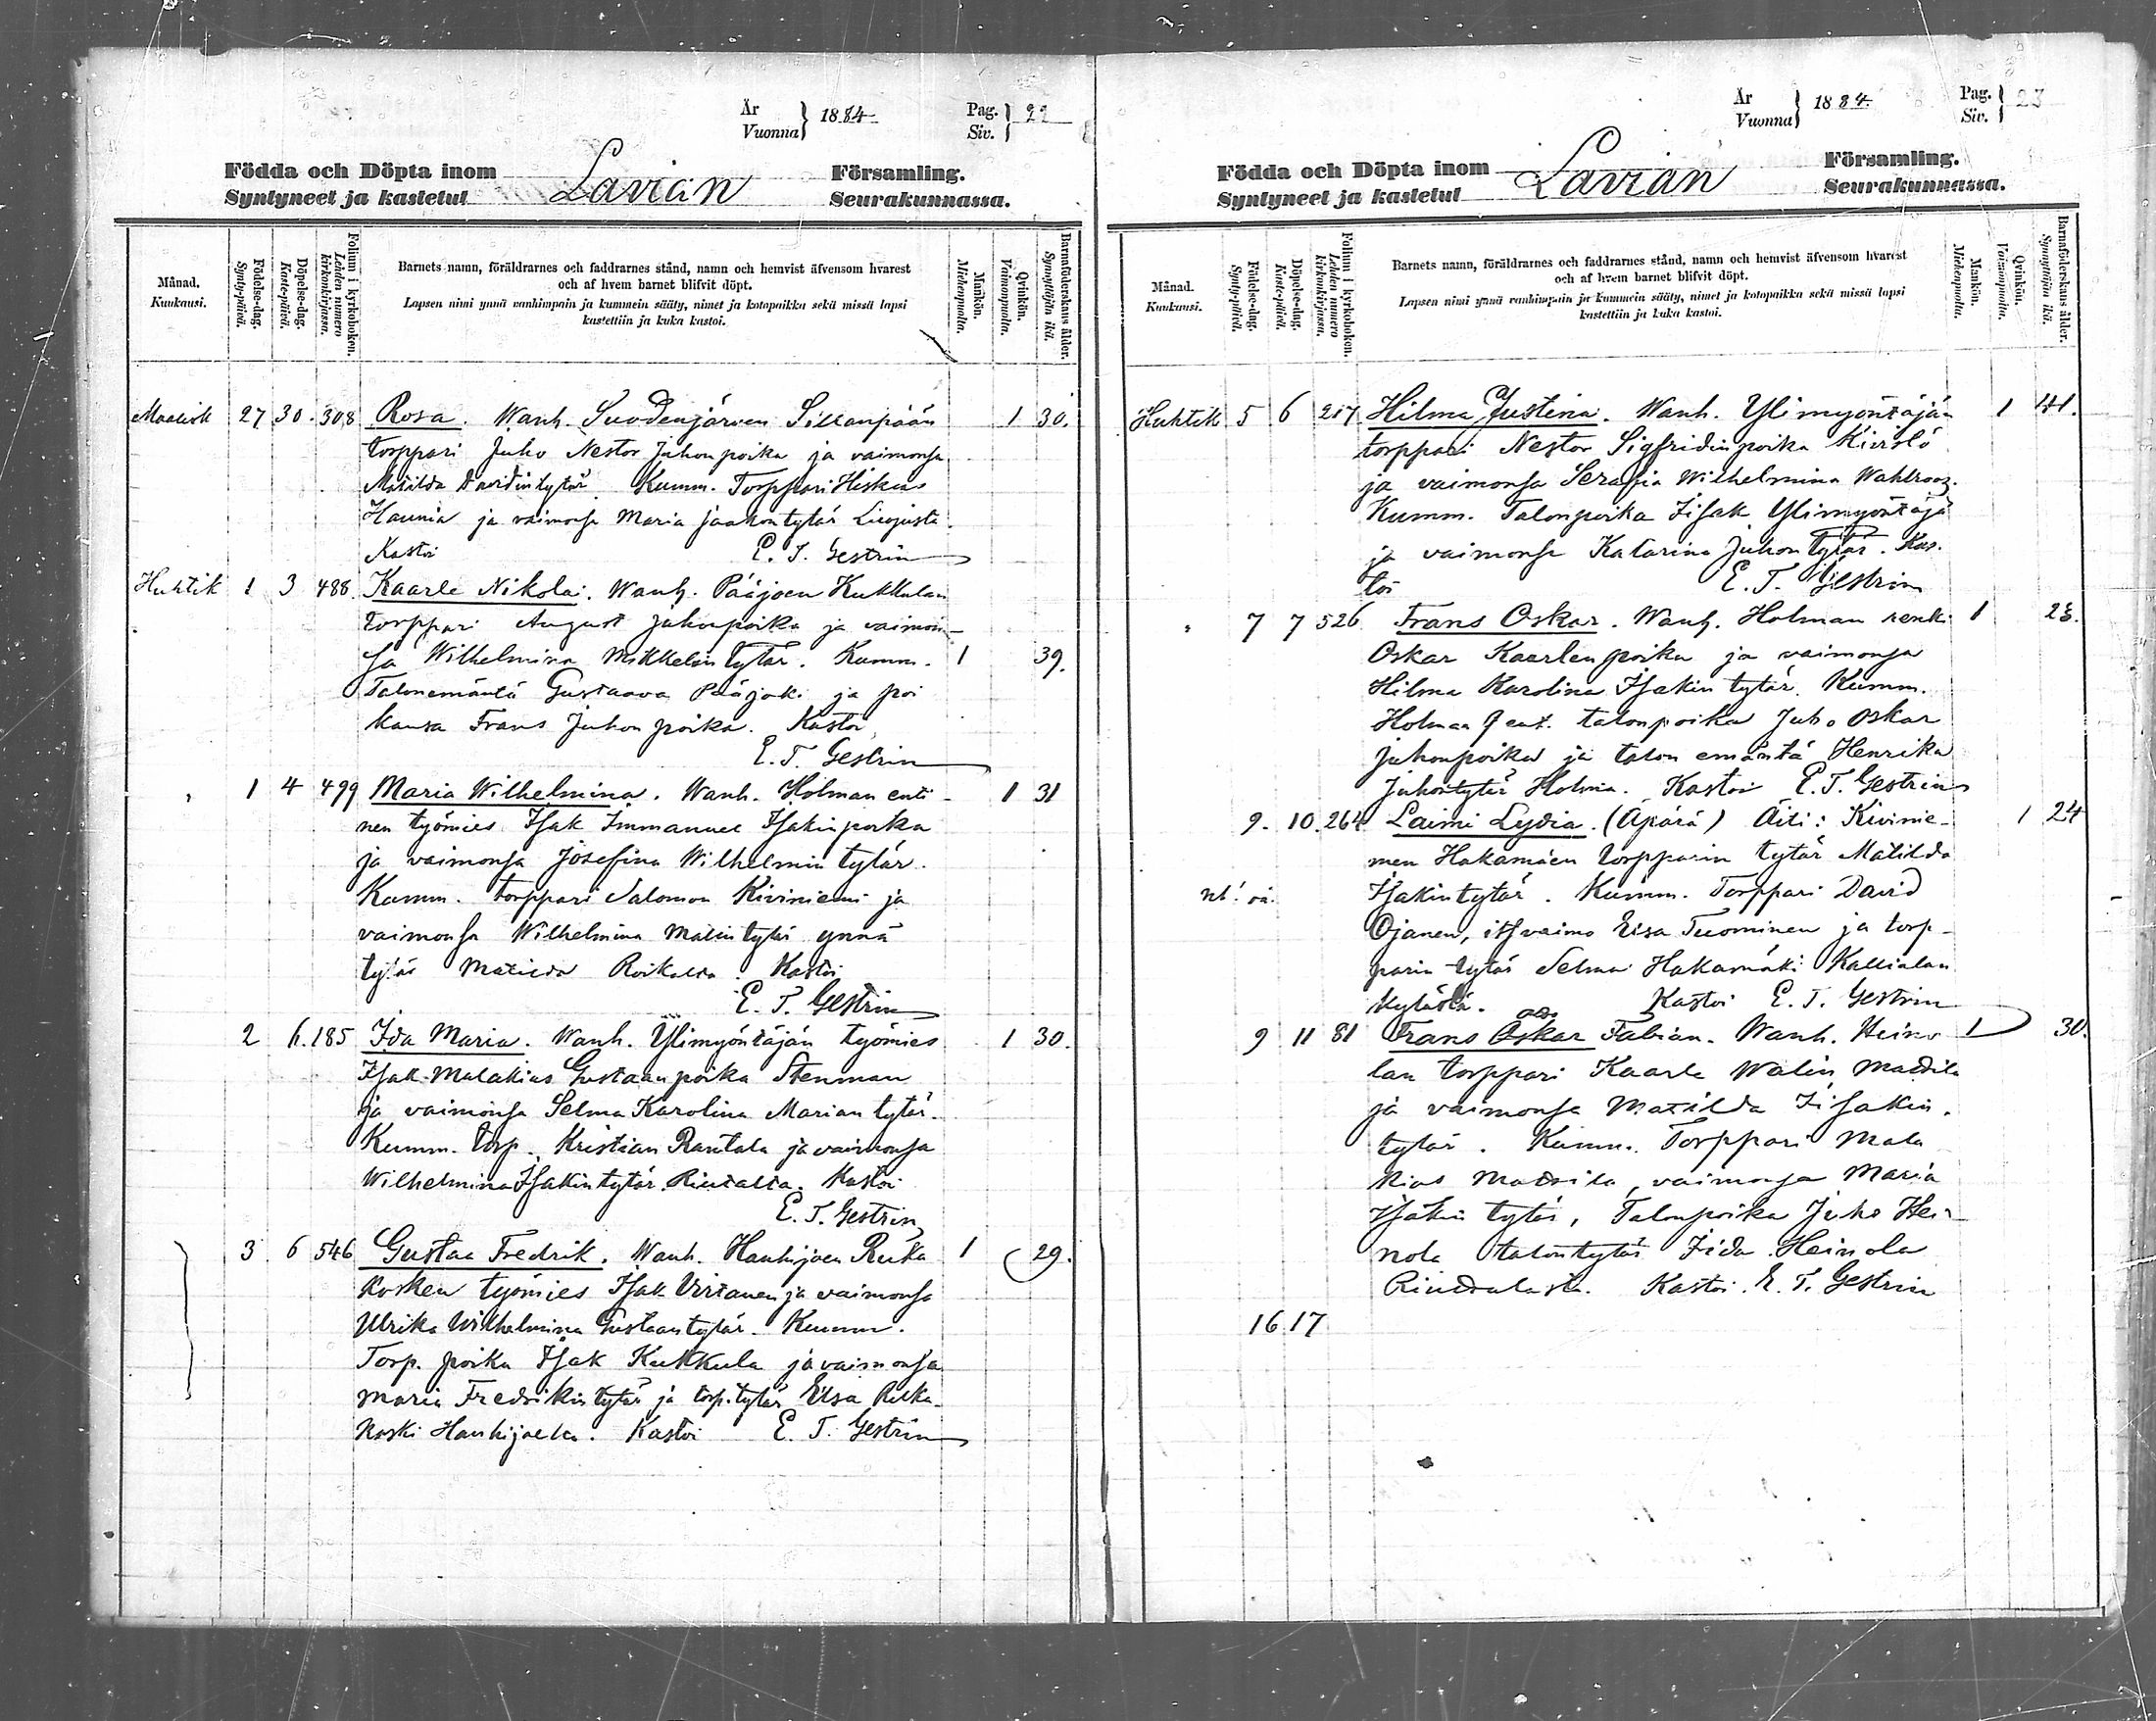 År
Vuonna } 1884 Pag. Siv. } 22
Födda och Döpta inom Lavian Församling.
Syntyneet ja kastetut Seurakunnassa.
Månad. Kuukausi.
Födelse-dag. Synty-päivä.
Döpelse-dag. Kaste-päivä.
Folium i kyrkoboken. Lehden numero kirkonkirjassa.
Barnets namn, föräldrarnes och faddrarnes stånd, namn och hemvist äfvensom hvarest
och af hvem barnet blifvit döpt.
Lapsen nimi ynnä vanhimpain ja kummein sääty, nimet ja kotopaikka sekä missä lapsi
kastettiin ja kuka kastoi.
Mankön. Miehenpuolta.
Qvinkön. Vaimonpuolta.
Barnaföderskans ålder. Synnyttäjän ikä.
Maalisk 27 30. 308 Rosa. Wanh. Suodenjärven Sillanpään 1 30.
torppari Juho Nestor Juhonpoika ja vaimonsa
Matilda Davidintytär. Kumm. Torppari Hiskias
Haunia ja vaimonsa Maria Jaakontytär
Kastoi E. T. Gestrin
Huhtik 1 3 488. Kaarle Nikolai. Wanh. Pääjoen Kukkulan
torppari August Juhonpoika ja vaimon-
sa Wilhelmina Mikkelintytär. Kumm. 1 39.
Talonemäntä Gustaava Pääjoki ja poi
kansa Frans Juhonpoika. Kastoi
E. T. Gestrin
1 4 499 Maria Wilhelmina. Wanh. Holman enti- 1 31
nen työmies Isak Immanuel Isakinpoika
ja vaimonsa Josefina Wilhelmintytär.
Kumm. torppari Salomon Kiviniemi ja
vaimonsa Wilhelmina Matintytär ynnä
tytär Matilda Kastoi
E. T. Gestrin
2 6. 185 Ida Maria. Wanh. Ylimyöntäjän työmies 1 30.
Isak Malakias Gustaanpoika Stenman
ja vaimonsa Selma Karolina Mariantytär.
Kumm. torp. Kristian Rantala ja vaimonsa
Wilhelmina Isakintytär Kastoi
E. T. Gestrin
3. 6 546 Gustaa Fredrik. Wanh. Hanhijoen Reika 1 29.
kosken työmies Isak Virtanen ja vaimonsa
Ulrika Wilhelmina Gustaantytär. Kumm.
Torp. poika Isak Kukkula ja vaimonsa
Maria Fredrikintytär ja torp.tytär Eisa Reika-
koski Hanhijoelta. Kastoi E. T. Gestrin
År
Vuonna } 1884. Pag. Siv. } 23
Födda och Döpta inom Lavian Församling.
Syntyneet ja kastetut Seurakunnassa.
Månad. Kuukausi.
Födelse-dag. Synty-päivä.
Döpelse-dag. Kaste-päivä.
Folium i kyrkoboken. Lehden numero kirkonkirjassa.
Barnets namn, föräldrarnes och faddrarnes stånd, namn och hemvist äfvensom hvarest
och af hvem barnet blifvit döpt.
Lapsen nimi ynnä vanhimpain ja kummein sääty, nimet ja kotopaikka sekä missä lapsi
kastettiin ja kuka kastoi.
Mankön. Miehenpuolta.
Qvinkön. Vaimonpuolta.
Barnaföderskans ålder. Synnyttäjän ikä.
Huhtik 5 6 217 Hilma Justina. Wanh. Ylimyöntäjän 1 41.
torppari Nestor Sigfridinpoika
ja vaimonsa Serafia Wilhelmina Wahlroos.
Kumm. Talonpoika Iisak Ylimyöntäjä
ja vaimonsa Katarina Juhontytär. Kas-
toi E. T. Gestrin
" 7 7 526 Frans Oskar. Wanh. Holman renki 1 23.
Oskar Kaarlenpoika ja vaimonsa
Hilma Karolina Isakintytär. Kumm.
Holman talonpoika Juho Oskar
Juhonpoika ja talon emäntä Henrika
Juhontytär Holma. Kastoi E. T. Gestrin
9. 10. 264 Laimi Lydia. (Äpärä) Äiti: Kivinie- 1 24
men Hakamäen torpparin tytär Matilda
Isakintytär. Kumm. Torppari David
Ojanen, its.vaimo Eisa Tuominen ja torp-
parin tytär Selma Hakamäki Kallialan
kylästä. Kastoi E. T. Gestrin
9 11 81 Frans Oskar Fabian. Wanh. Heino 1 30.
lan torppari Kaarle Walin Mattila
ja vaimonsa Matilda Iisakin-
tytär. Kumm. Torppari Mala
kias Mattila, vaimonsa Maria
Isakintytär, Talonpoika Juho Hei-
nola talontytär Iida Heinola
Riuttalasta. Kastoi E. T. Gestrin
16 17